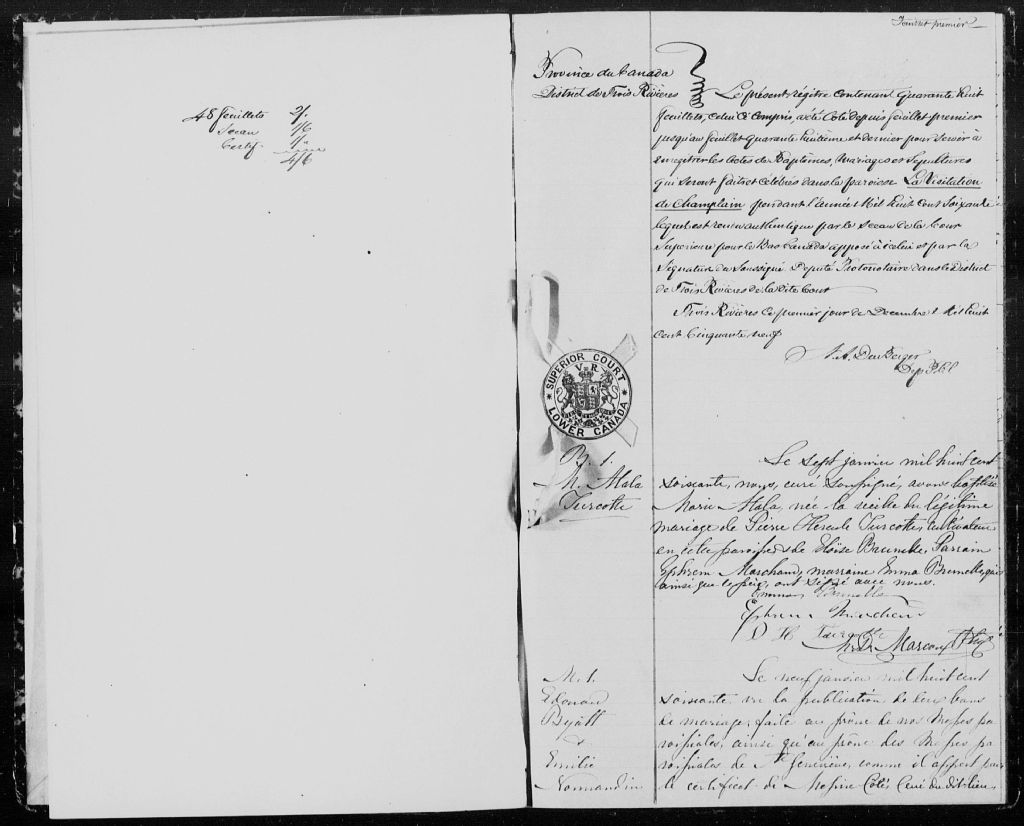 48 feuillets 2/.
Sceau 1/6
Certif. 1/"
4/6
Feuillet premier
Province du Canada
District de Trois Rivières
Le présent régitre contenant Quarante huit
feuillets, celui ci compris, a été coté depuis feuillet premier
jusqu'au feuillet quarante huitième et dernier pour servir à
enregitrer les Actes de Baptêmes, Mariages et Sépultures
qui seront faits et célébrés dans la paroisse La Visitation
de Champlain pendant l'année Mil huit cent Soixante
lequel est rendu authentique par le Sceau de la Cour
Supérieure pour le Bas Canada apposé à celui et par la
Signature du Soussigné Deputé Protonotaire dans le District
de Trois Rivières de la dite Cour
Trois Rivières ce premier jour de Decembre Mil huit
cent Cinquante neuf
Dep. P.
SUPERIOR COURT
V R
LOWER CANADA
B. 1.
M. Atala
Turcotte
Le sept janvier mil huit cent
soixante, nous, curé soussigné, avons baptisé
Marie Atala, née la veille du légitime
mariage de Pierre Hercule Turcotte, cultivateur
en cette paroisse & de Eloïse Brunelle, Parrain
Ephrem Marchand, marraine Emma Brunelle, qui
ainsi que le père, ont signé avec nous.
Emma Brunelle
Ephrem Marchand
P H Turcotte
Marcoux Ptre
M. 1.
Edouard
&
Emilie
Normandin
Le neuf janvier mil huit cent
soixante, vu la publication de deux bans
de mariage, faite au prône de nos Messes pa
roissiales, ainsi qu'au prône des Messes pa
roissiales de Ste Geneviève, comme il appert par
le certificat de Messire Côté, Curé du dit lieu,